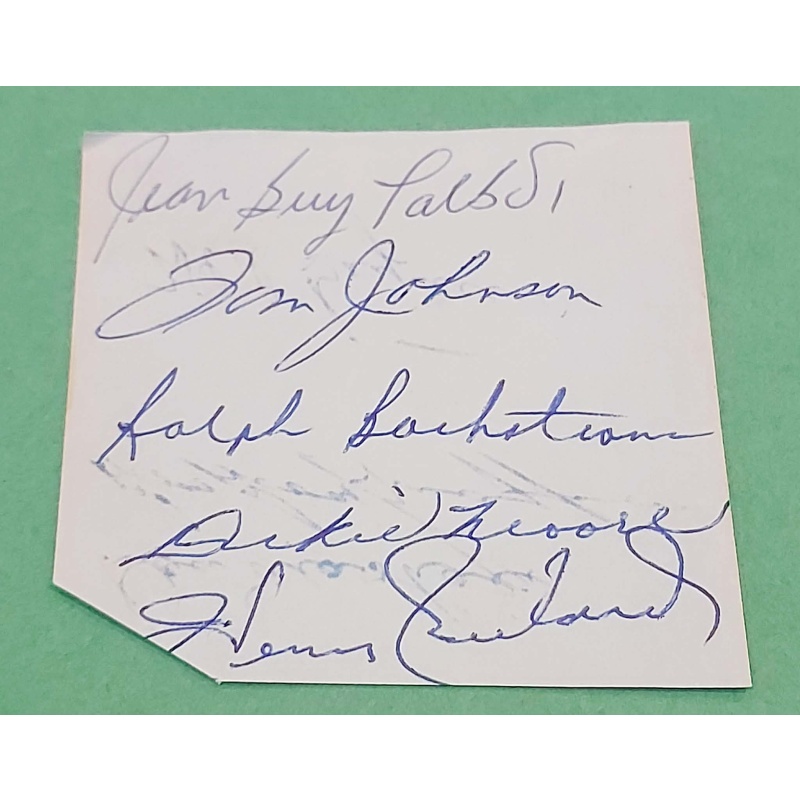 Jean Guy Talbot
Tom Johnson
Ralph Backstrom
Dickie Moore
Henri Richard